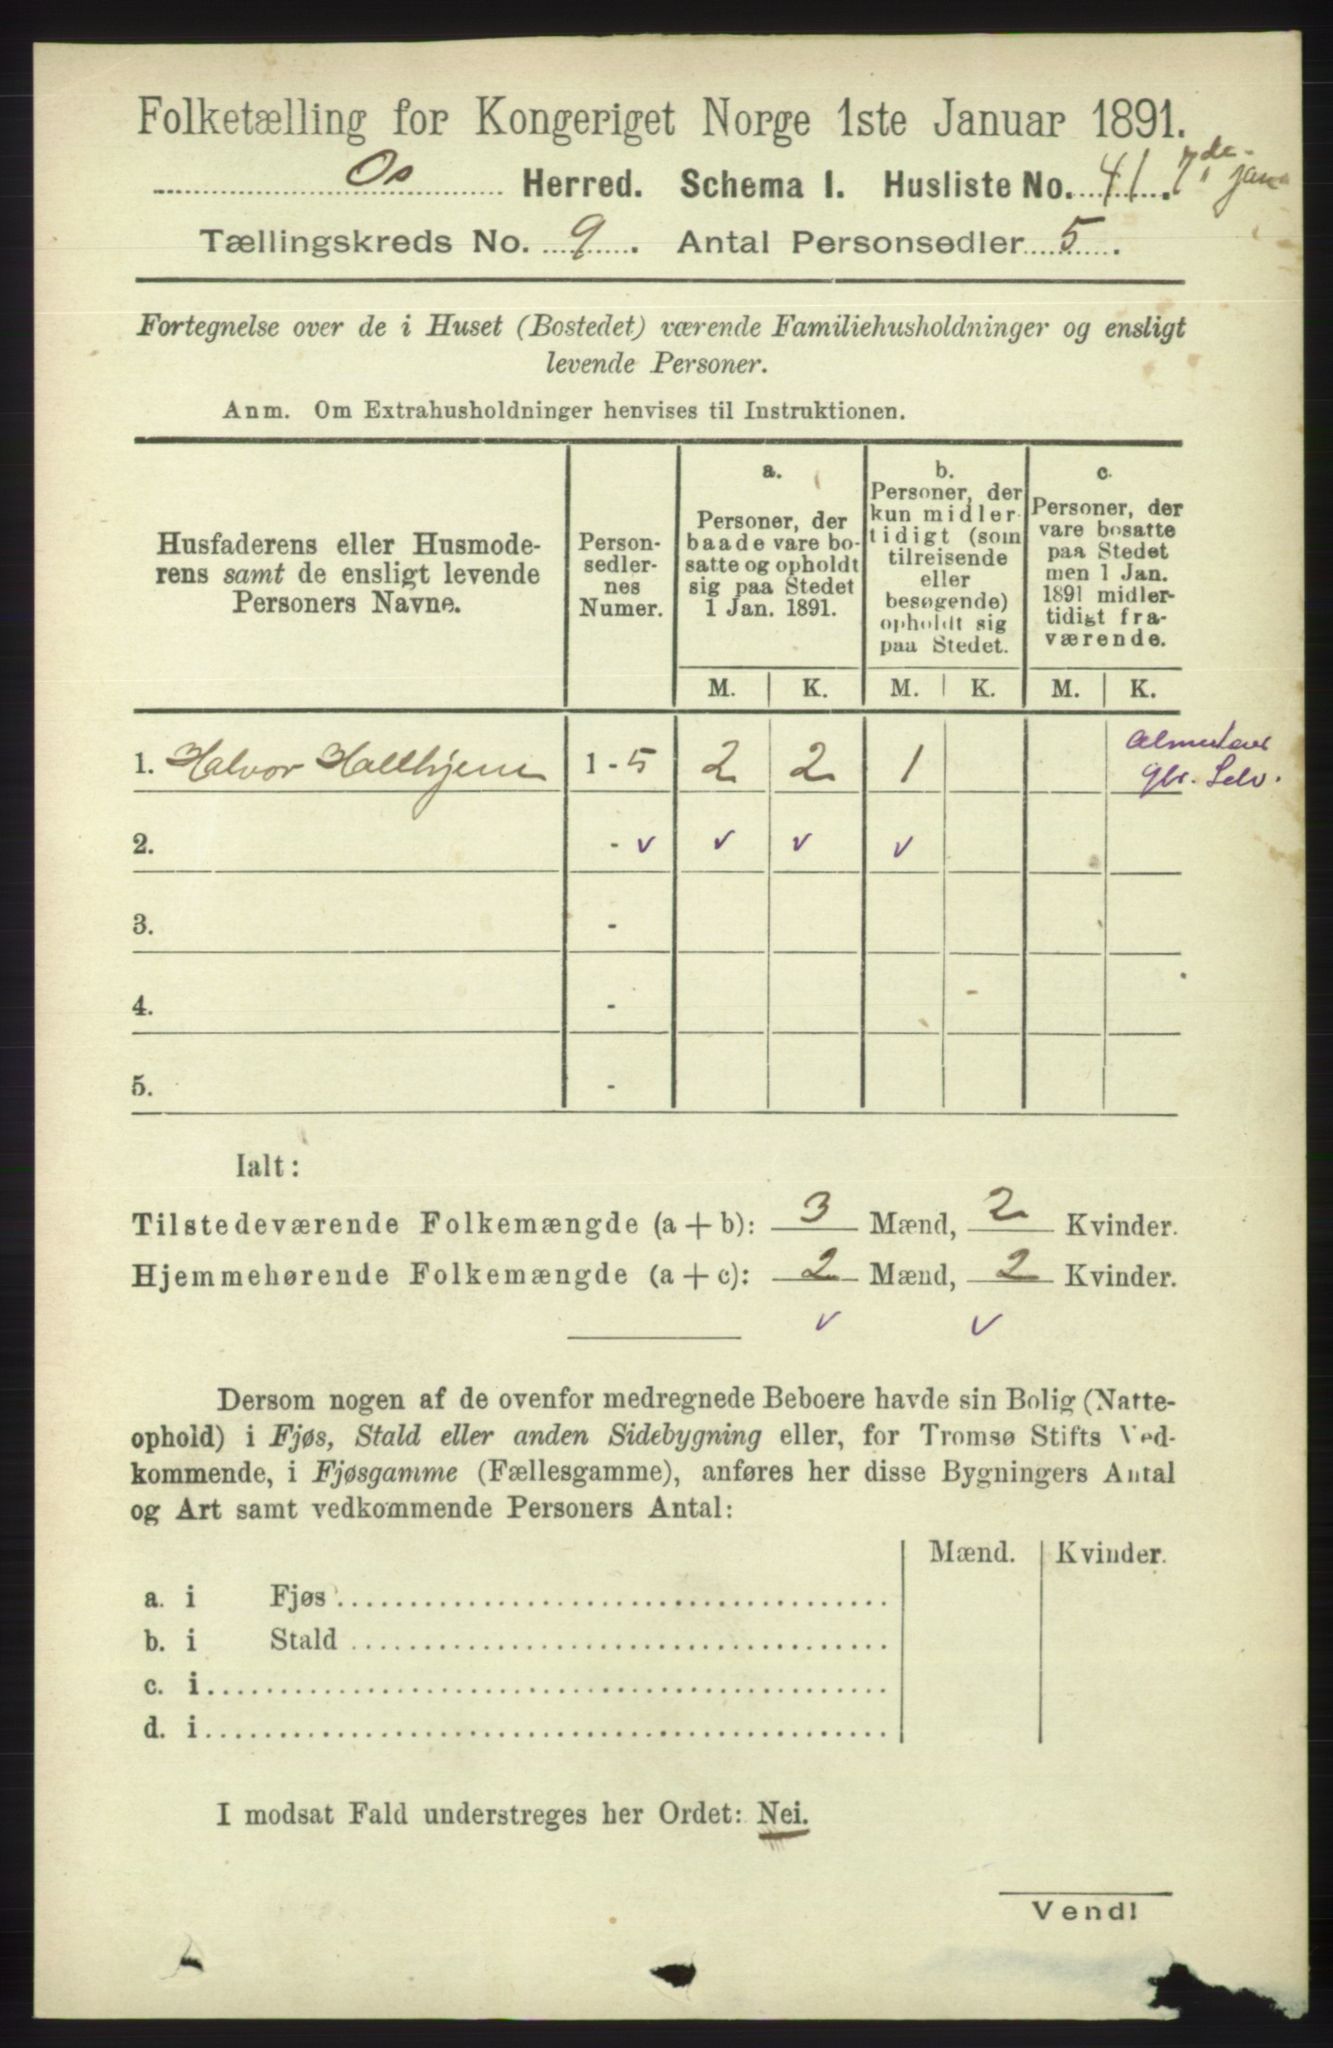 Folketælling for Kongeriget Norge 1ste Januar 1891.
Os Herred. Schema I. Husliste No. 41. 7de Jan
Tællingskreds No. 9. Antal Personsedler 5.
Fortegnelse over de i Huset (Bostedet) værende Familiehusholdninger og ensligt
levende Personer.
Anm. Om Extrahusholdninger henvises til Instruktionen.
Husfaderens eller Husmode-
rens samt de ensligt levende
Personers Navne.
Person-
sedler-
nes
Numer.
a.
Personer, der
baade vare bo-
satte og opholdt
sig paa Stedet
1 Jan. 1891.
b.
Personer, der
kun midler-
tidigt (som
tilreisende
eller
besøgende)
opholdt sig
paa Stedet.
c.
Personer, der
vare bosatte
paa Stedet
men 1 Jan.
1891 midler-
tidigt fra-
værende.
M. K. M. K. M. K.
1. Halvor Halhjem 1 - 5 2 2 1
gbr. Selv.
2. - v v v v
3. -
4. -
5. -
Ialt:
Tilstedeværende Folkemængde (a + b): 3 Mænd, 2 Kvinder.
Hjemmehørende Folkemængde (a + c): 2 Mænd, 2 Kvinder.
v v
Dersom nogen af de ovenfor medregnede Beboere havde sin Bolig (Natte-
ophold) i Fjøs, Stald eller anden Sidebygning eller, for Tromsø Stifts Ved-
kommende, i Fjøsgamme (Fællesgamme), anføres her disse Bygningers Antal
og Art samt vedkommende Personers Antal:
Mænd. Kvinder.
a. i Fjøs
b. i Stald
c. i
d. i
I modsat Fald understreges her Ordet: Nei.
Vend!